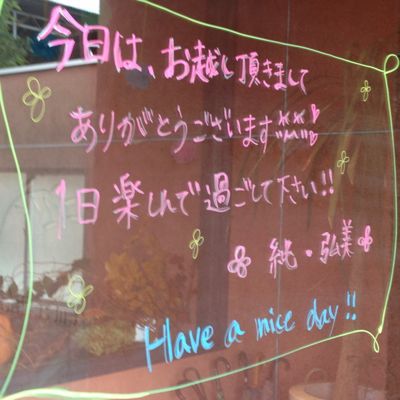 今日は、お越し頂きまして
ありがとうございます
1日楽しんで過ごして下さい!!
純・弘美
Have a nice day!!